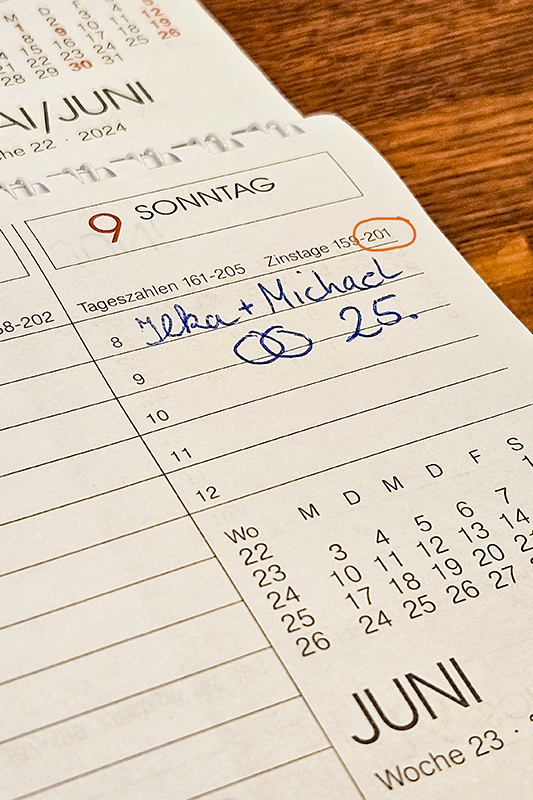 15 16 17 18 19
22 23 24 25 26
28 29 30 31
AI/JUNI
he 22 · 2024
9 SONNTAG
Tageszahlen 161-205 Zinstage 159-201
8-202
8 Ilka + Michael
9 25.
10
11
12
Wo M D M D F S
22 1
23 3 4 5 6 7
24 10 11 12 13 14
25 17 18 19 20 21
26 24 25 26 27
JUNI
Woche 23 ·